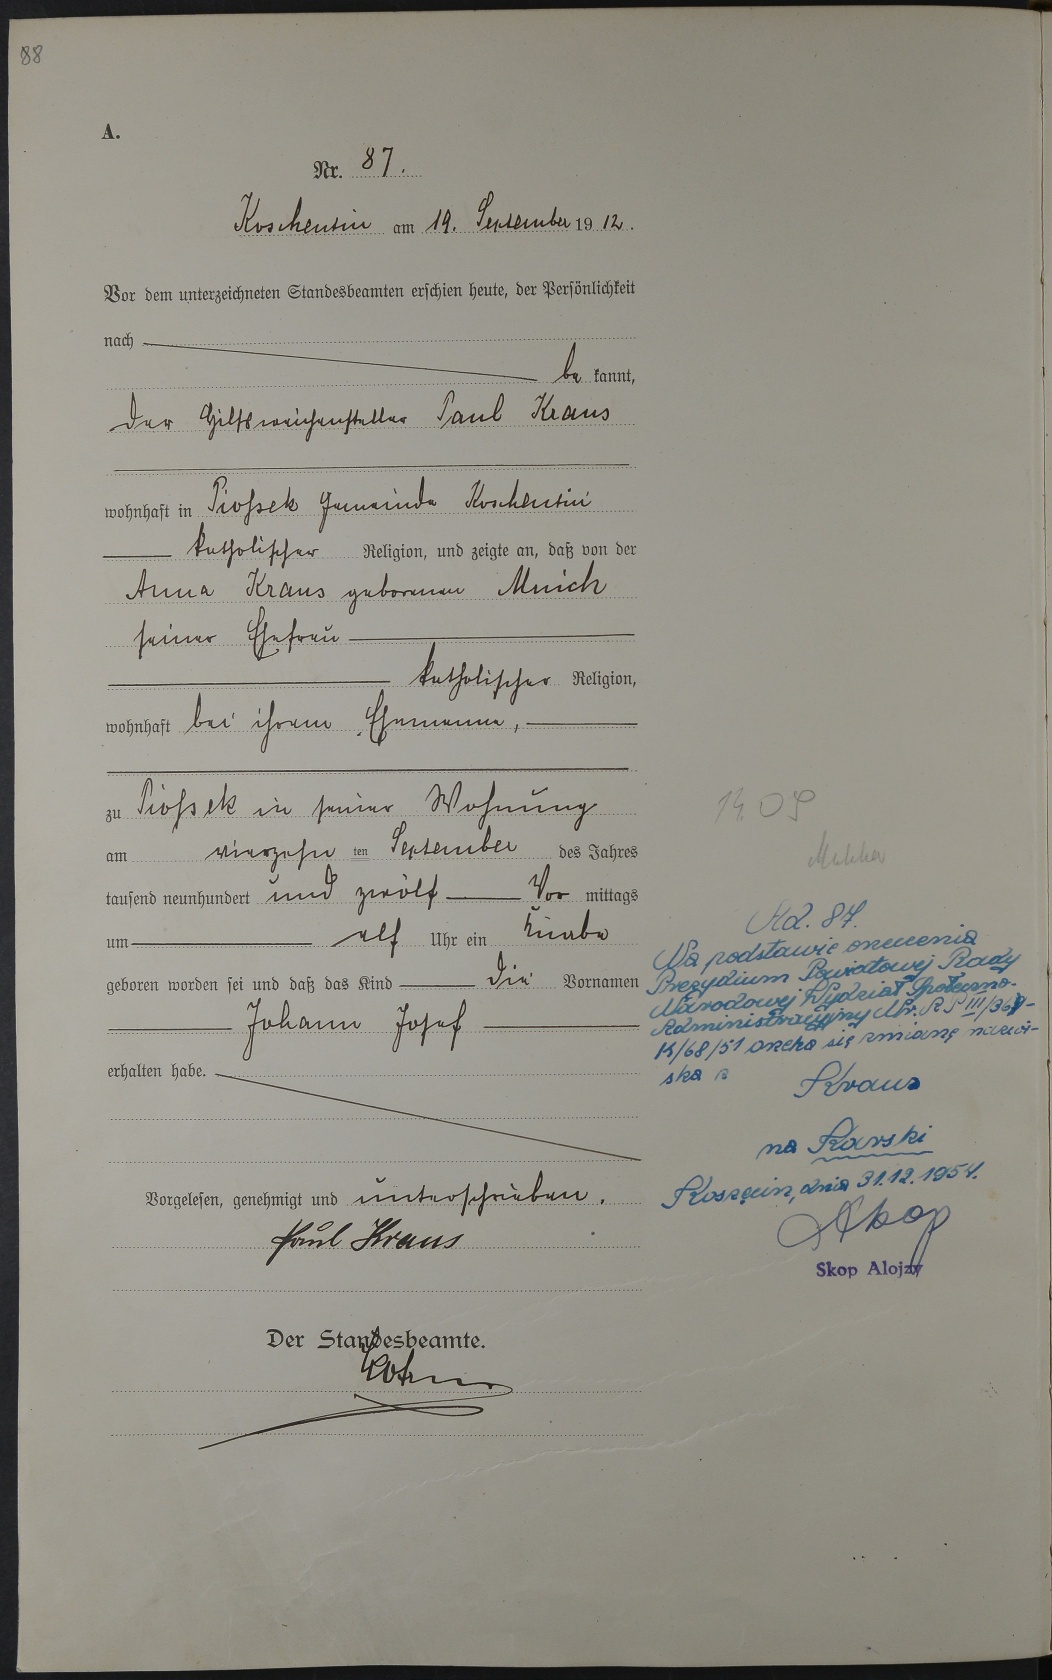 88
A.
Nr. 87.
Koschentin am 19. September 1912.
Vor dem unterzeichneten Standesbeamten erschien heute, der Persönlichkeit
nach
be kannt,
der Hilfsweichensteller Paul Kraus
wohnhaft in Piohsek Gemeinde Koschentin
katholischer Religion, und zeigte an, daß von der
Anna Kraus geborenen Mnich
seiner Ehefrau
katholischer Religion,
wohnhaft bei ihrem Ehemanne,
zu Piohsek in seiner Wohnung
am vierzehn ten September des Jahres
tausend neunhundert und zwölf Vor mittags
um elf Uhr ein Knabe
geboren worden sei und daß das Kind die Vornamen
Johann Josef
erhalten habe.
Vorgelesen, genehmigt und unterschrieben.
Paul Kraus
Der Standesbeamte.
14 09
Ad. 87.
Na podstawie orzeczenia
Prezydium Powiatowej Rady
Narodowej Wydział Społeczno-
Administracyjny Nr. R S III/36g-
K/68/51 orzeka się zmianę nazwi-
ska z
Kraus
na Karski
Koszęcin, dnia 31.12.1954.
Skop
Skop Alojzy